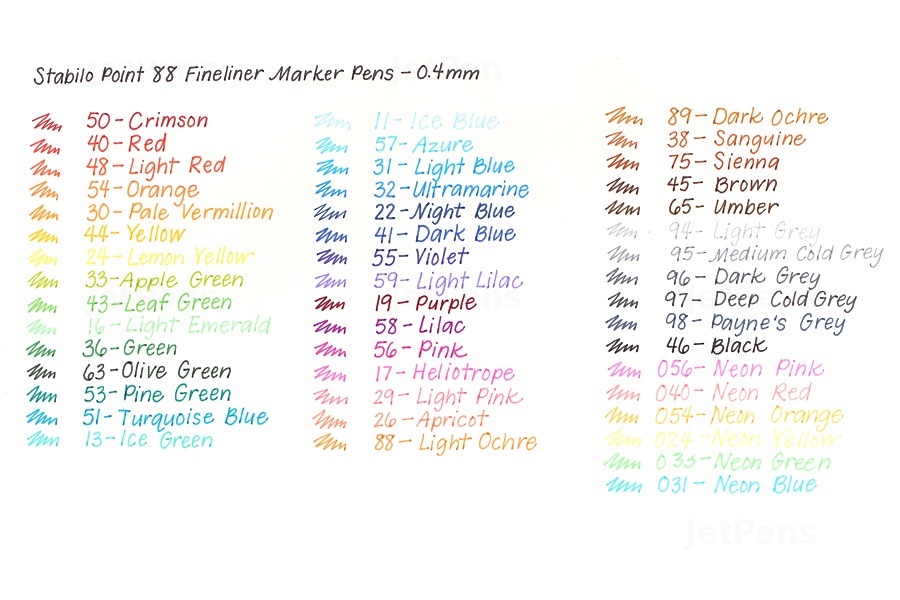 Stabilo Point 88 Fineliner Marker Pens - 0.4mm
50 - Crimson
40 - Red
48 - Light Red
54 - Orange
30 - Pale Vermillion
44 - Yellow
24 - Lemon Yellow
33 - Apple Green
43 - Leaf Green
16 - Light Emerald
36 - Green
63 - Olive Green
53 - Pine Green
51 - Turquoise Blue
13 - Ice Green
11 - Ice Blue
57 - Azure
31 - Light Blue
32 - Ultramarine
22 - Night Blue
41 - Dark Blue
55 - Violet
59 - Light Lilac
19 - Purple
58 - Lilac
56 - Pink
17 - Heliotrope
29 - Light Pink
26 - Apricot
88 - Light Ochre
89 - Dark Ochre
38 - Sanguine
75 - Sienna
45 - Brown
65 - Umber
94 - Light Grey
95 - Medium Cold Grey
96 - Dark Grey
97 - Deep Cold Grey
98 - Payne's Grey
46 - Black
056 - Neon Pink
040 - Neon Red
054 - Neon Orange
024 - Neon Yellow
033 - Neon Green
031 - Neon Blue
JetPens